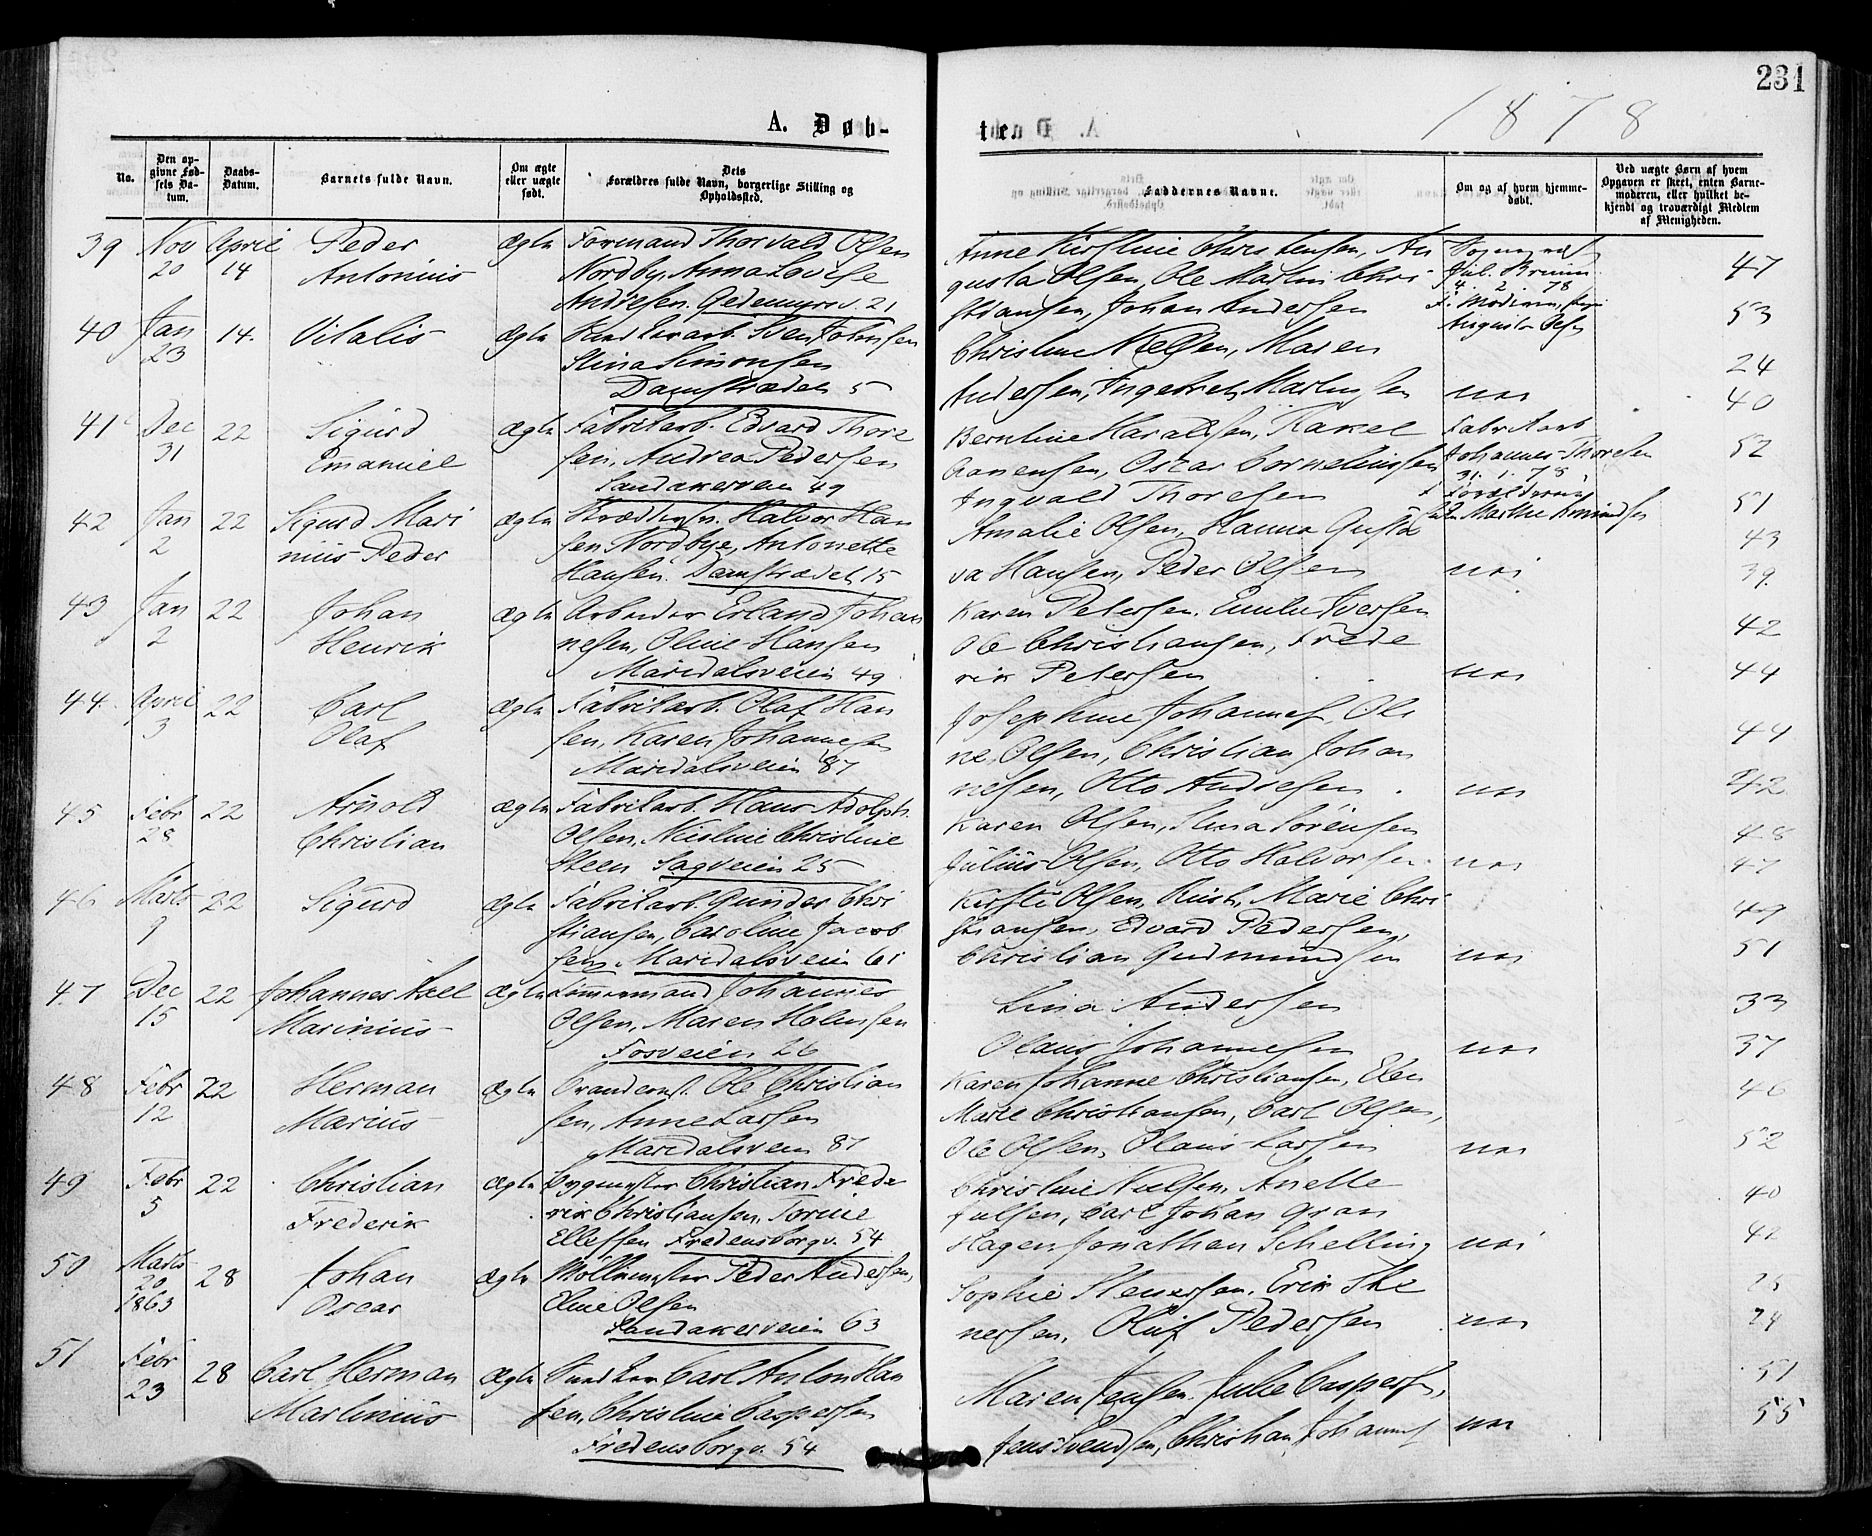 231
1878
A. Døb-
ten
No.
Den op-
givne Fød-
sels Da-
tum.
Daabs-
Datum.
Barnets fulde Navn.
Om ægte
eller uægte
født.
Dets
Forældres fulde Navn, borgerlige Stilling og
Opholdssted.
Faddernes Navne.
Om og af hvem hjemme-
døbt.
Ved uægte Børn af hvem
Opgaven er skeet, enten Barne-
moderen, eller hvilket be-
kjendt og troværdigt Medlem
af Menigheden.
39 Nov 20 April 14 Peder Antonius ægte
Formand Thorvald Olsen
Nordby, Anna Lovise
Andresen. Gedemyrsv. 21
Anne Kirstine Christensen, Au
gusta Olsen, Ole Martin Chri
stiansen, Johan Andersen
Jul. Bruun
4. 2 78
Augusta Olsen
47
53
40 Jan 23 14. Vitalis ægte
Sven Johnsen
Stina Simonsen
Damstrædet 5
Christine Nielsen, Maren
Andersen, Ingebreth Martinsen
nei
24
40
41 Dec 31 22 Sigurd Emanuel ægte
Fabrikarb. Edvard Thore
sen, Andrea Pedersen
Sandakerveien 49
Berntine Haraldsen, Rakel
Aanensen, Oscar Corneliussen
Ingvald Thoresen
Fabrikarb
Johannes Thoresen
31. 1. 78
52
51
42 Jan 2 22 Sigurd Mari
nius Peder ægte
Halvor Han
sen Nordbye, Antonette
Hansen. Damstrædet 15
Amalie Olsen, Hanna Gusta
va Hansen, Peder Olsen
nei
43
39
43 Jan 2 22 Johan Henrik ægte
Arbeider Erland Johan
nesen, Oline Hansen
Maridalsveien 49
Karen Petersen, Emilie Iversen
Ole Christiansen, Frede
rik Petersen
nei
42
44
44. April 3 22 Carl Olaf ægte
Fabrikarb. Olaf Han
sen, Karen Johannesen
Maridalsveien 87
Josephine Johannes, Oli
ne Olsen, Christian Johan
nesen, Otto Andresen
nei
44
42
45 Febr 28 22 Arnold Christian ægte
Fabrikarb. Hans Adolph
Olsen, Christine
Steen Sagveien 25
Karen Olsen, Stina Sörensen
Julius Olsen, Otto Halvorsen
nei
48
47
46 Marts 9 22 Sigurd ægte
Fabrikarb. Gunder Chri
stiansen, Caroline Jacob
sen. Maridalsveien 61
Kirsti Olsen, Marie Chri
stiansen, Edvard Pedersen,
Christian Gudmundsen
nei
49
51
47 Dec 15 22 Johannes Axel Marinius ægte
Tömmermand Johannes
Olsen, Maren Halmsen
Fosveien 26
Lina Andersen
Olaus Johannesen
nei
33
37
48 Febr 12 22 Herman Marius ægte
Ole Christian
sen, Anne Larsen
Maridalsveien 87
Karen Johanne Christiansen, Elen
Marie Christiansen, Carl Olsen,
Ole Olsen, Olaus Larsen
nei
46
52
49 Febr 5 22 Christian Frederik ægte
Bygmester Christian Frede
rik Christiansen, Torine
Ellefsen Fredensborgv. 54
Christine Nielsen, Anette
Julsen, Carl Johan Gran
Hagen, Jonathan Schelling
nei
40
42
50 Marts 20 1863 28 Johan Oscar ægte
Möllemester Peder Andersen,
Eline Olsen
Sandakerveien 63
Sophie Stenersen, Erik Ste
nersen, Oluf Pedersen
nei
25
24
51 Febr 23 28 Carl Herman Martinius ægte
Carl Anton Han
sen, Christine Caspersen
Fredensborgv. 54
Maren Jensen. Julie Caspersen,
Jens Svendsen, Christian Johannes
nei
51
55